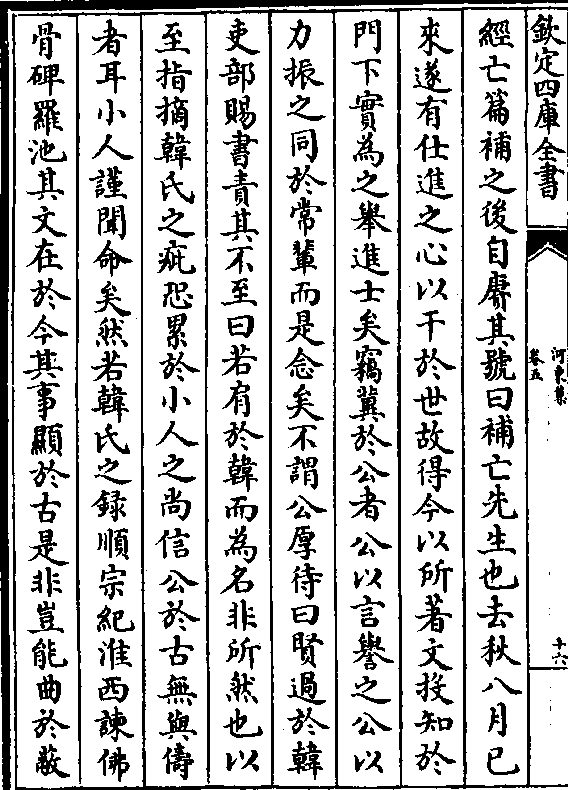 欽定四庫全書
河東集
卷五
十六
經亡篇補之後自賡其號曰補亡先生也去秋八月已
來遂有仕進之心以干於世故得今以所著文投知於
門下實為之舉進士矣竊冀於公者公以言譽之公以
力振之同於常輩而是念矣不謂公厚待曰賢過於韓
吏部賜書責其不至曰若有於韓而為名非所然也以
至指摘韓氏之疵恐累於小人之尚信公於古無與儔
者耳小人謹聞命矣然若韓氏之録順宗紀淮西諫佛
骨碑羅池其文在於今其事顯於古是非豈能曲於蔽